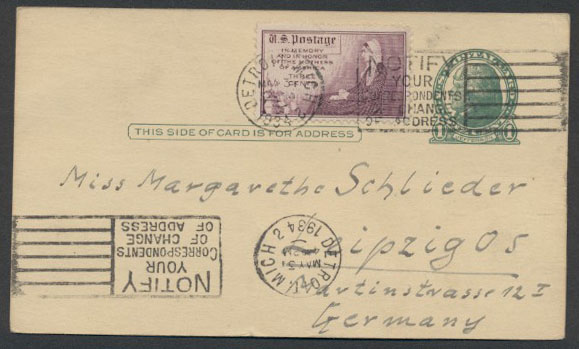 U.S. Postage
IN MEMORY
AND IN HONOR
OF THE MOTHERS
OF AMERICA
THREE
CENTS
DETROIT MICH 2
MAY
1934
NOTIFY
YOUR
CORRESPONDENTS
OF CHANGE
OF ADDRESS
THIS SIDE OF CARD IS FOR ADDRESS
Miss Margarethe Schlieder
Leipzig O5
Martinstrasse 12 I
Germany
NOTIFY
YOUR
CORRESPONDENTS
OF CHANGE
OF ADDRESS
DETROIT MICH 2
MAY 31
1934